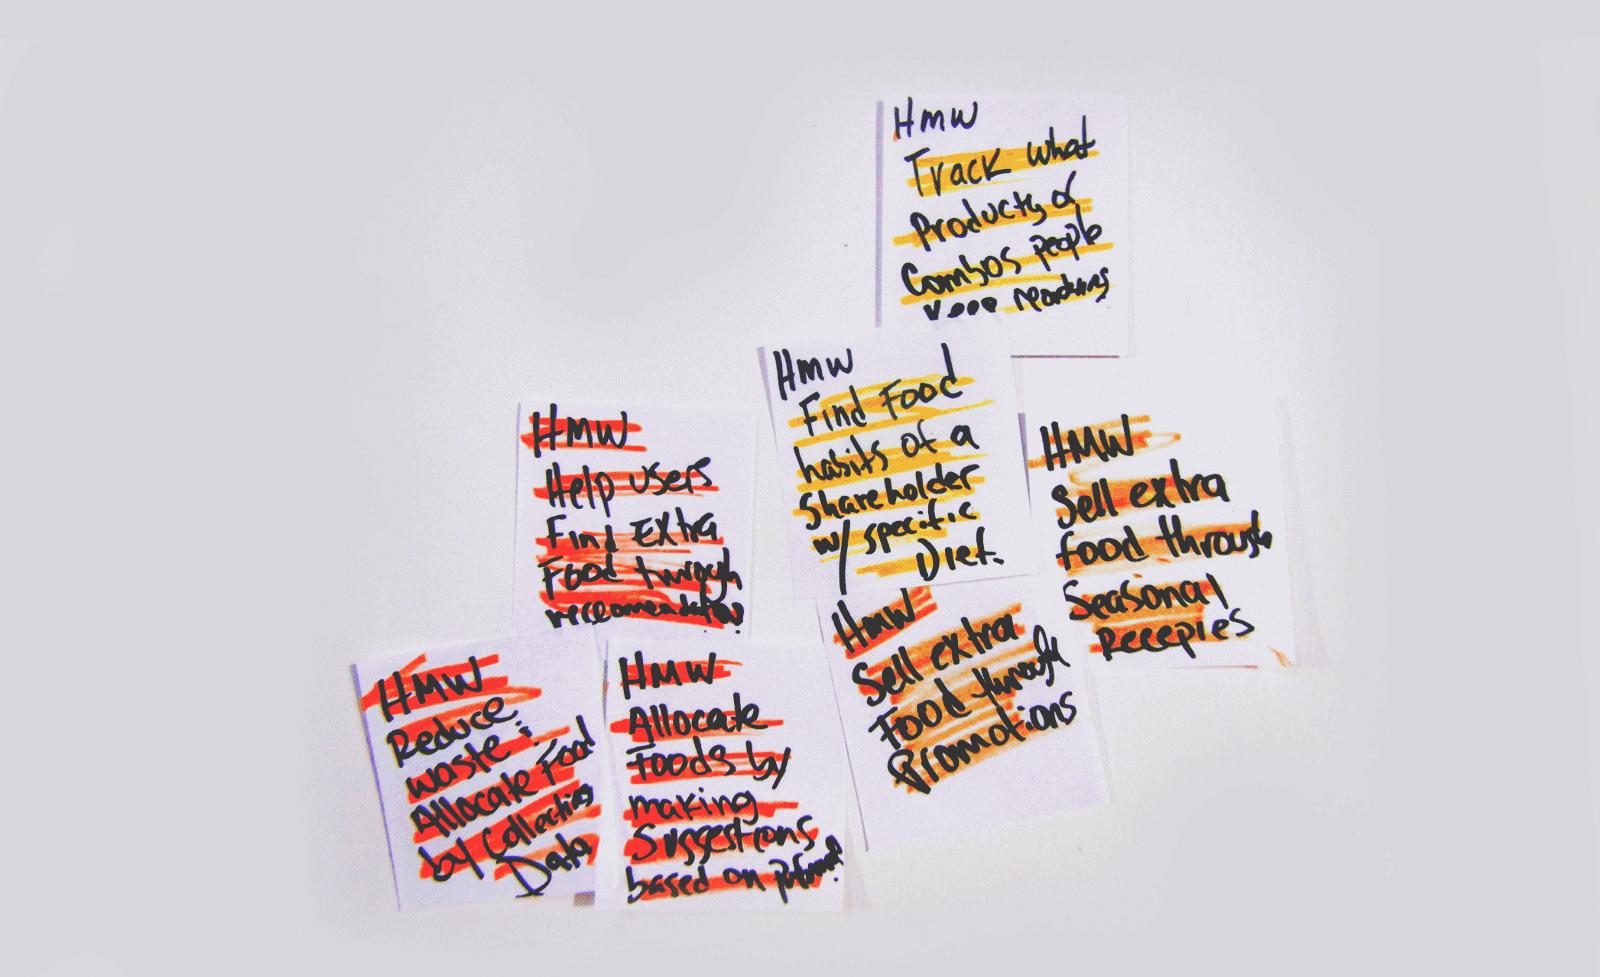 HMW
Track what
Products of
Combos people
HMW
Find Food
habits of a
Shareholder
w/ specific
Diet.
HMW
Help users
Find Extra
Food through
HMW
Sell extra
food through
Seasonal
Recepies
HMW
Reduce
waste:
Allocate Food
by Collecting
Data
HMW
Allocate
Foods by
making
Suggestions
based on
HMW
Sell extra
Food through
Promotions